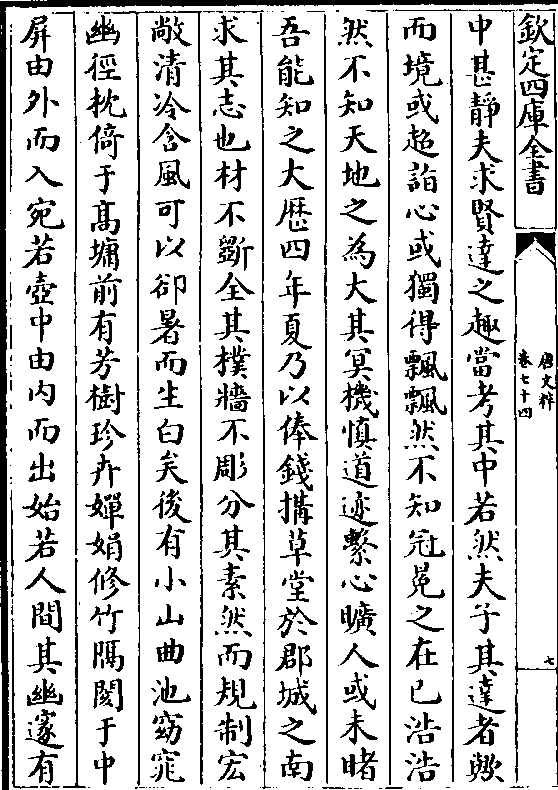 欽定四庫全書
唐文粹
卷七十四
七
中甚靜夫求賢達之趣當考其中若然夫子其達者歟
而境或超詣心或獨得飄飄然不知冠冕之在已浩浩
然不知天地之為大其冥機慎道迹繫心曠人或未睹
吾能知之大歴四年夏乃以俸錢搆草堂於郡城之南
求其志也材不斵全其樸牆不彫分其素然而規制宏
敞清冷含風可以卻暑而生白矣後有小山曲池窈窕
幽徑枕倚于髙墉前有芳樹珍卉嬋娟修竹隔閡于中
屏由外而入宛若壺中由内而出始若人間其幽邃有